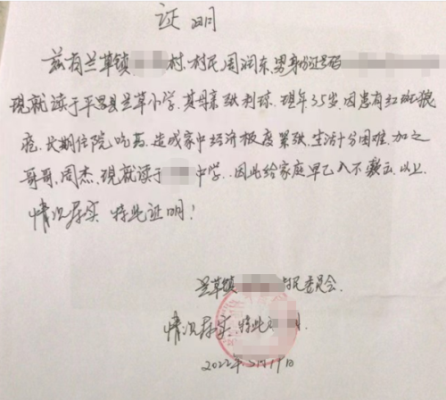 证明
兹有兰草镇 村,村民周润东,男身份证号码
现就读于平昌县兰草小学,其母亲张利琼,现年35岁,因患有红斑狼
疮,长期住院吃药,造成家中经济极度紧张,生活十分困难,加之
哥哥,周杰,现就读于 中学,因此给家庭早已入不敷出,以上
情况属实 特此证明!
兰草镇 村民委员会.
情况属实,特此
2022年 月19日